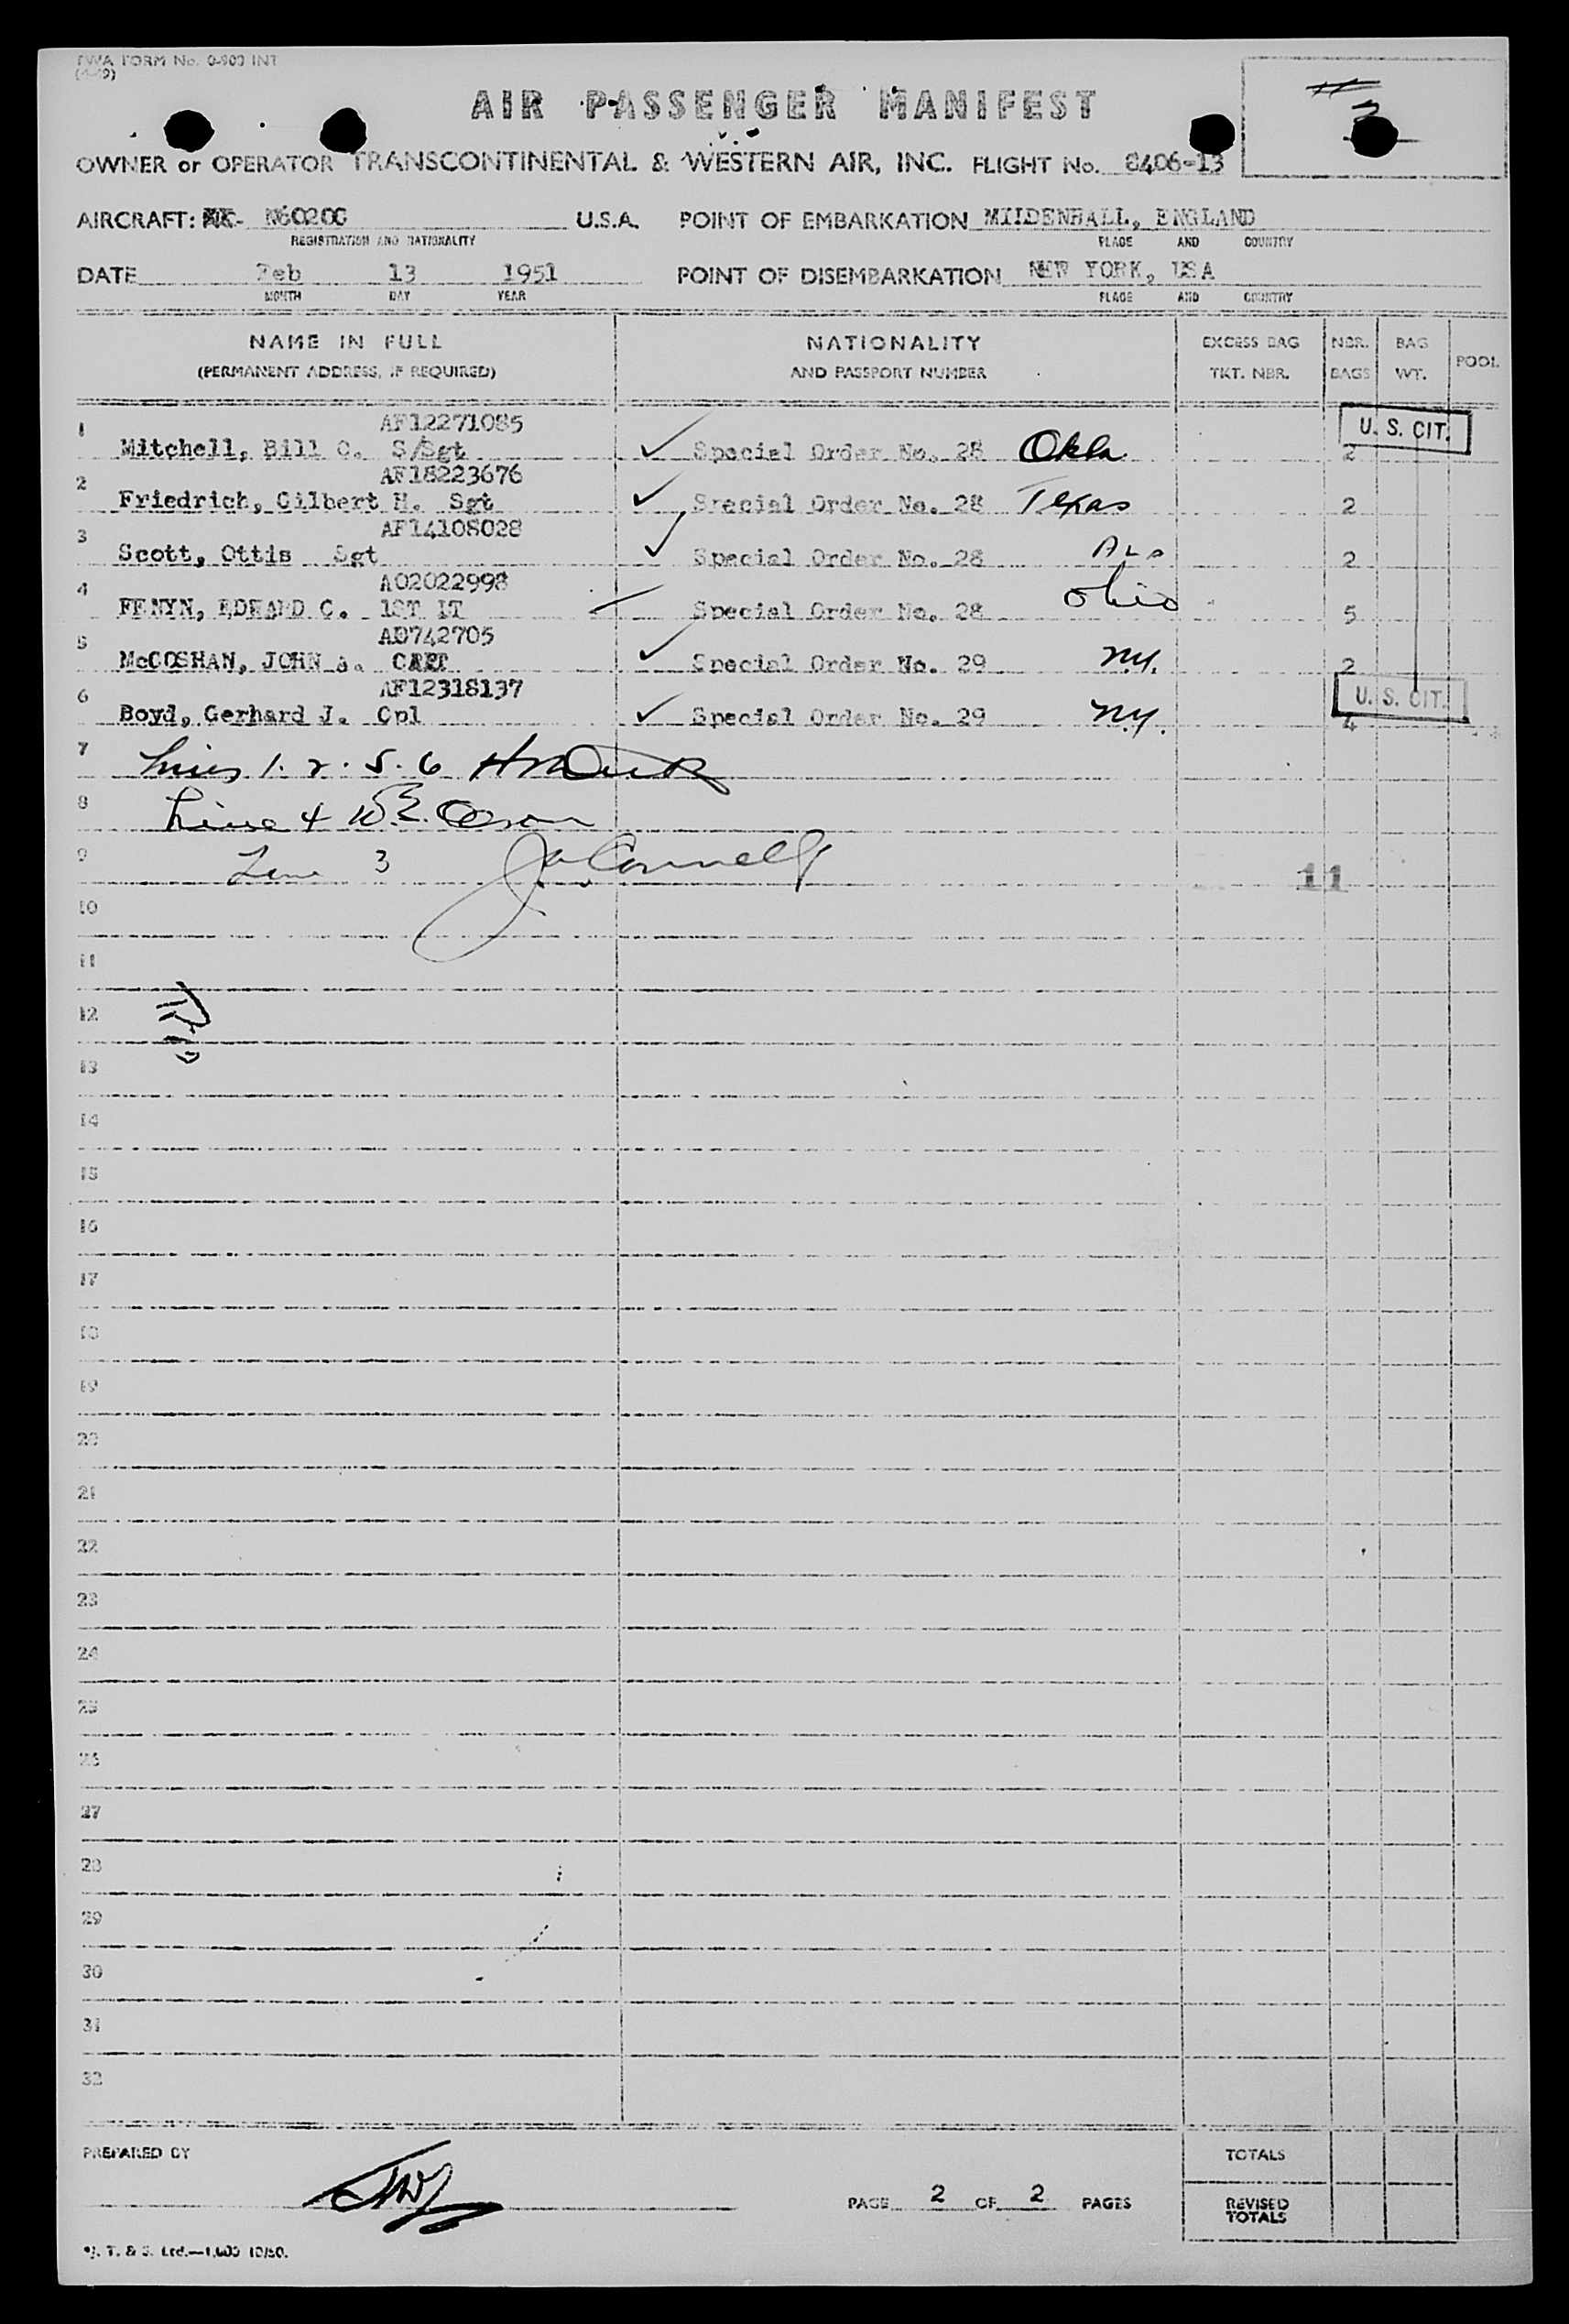 TWA FORM No. 0-900 INT
AIR PASSENGER MANIFEST
OWNER or OPERATOR TRANSCONTINENTAL & WESTERN AIR, INC. FLIGHT No. 8406-13
AIRCRAFT: N6020C U.S.A. POINT OF EMBARKATION MILDENHALL, ENGLAND
REGISTRATION AND NATIONALITY PLACE AND COUNTRY
DATE Feb 13 1951 POINT OF DISEMBARKATION NEW YORK, USA
MONTH DAY YEAR PLACE AND COUNTRY
NAME IN FULL NATIONALITY EXCESS BAG NBR. BAG POOL
(PERMANENT ADDRESS, IF REQUIRED) AND PASSPORT NUMBER TKT. NBR. BAGS WT.
AF12271085 U. S. CIT.
1 Mitchell, Bill C. S/Sgt ✓ Special Order No. 28 Okla 2
AF18223676
2 Friedrich, Gilbert H. Sgt ✓ Special Order No. 28 Texas 2
AF14108028
3 Scott, Ottis Sgt ✓ Special Order No. 28 ALA 2
AO2022998
4 FENYN, EDWARD C. 1ST LT Special Order No. 28 Ohio 5
AO742705
5 McCOSHAN, JOHN CAPT ✓ Special Order No. 29 N.Y. 2
AF12318137 U. S. CIT.
6 Boyd, Gerhard J. Cpl ✓ Special Order No. 29 N.Y. 4
7 Lines 1. 2. 5. 6
8 Line 4 W.E. Olson
9 Line 3 J. O'Connell 11
10
11
12
13
14
15
16
17
18
19
20
21
22
23
24
25
26
27
28
29
30
31
32
PREPARED BY TOTALS
PAGE 2 OF 2 PAGES REVISED
TOTALS
J. T. & S. Ltd.—1,600 10/50.